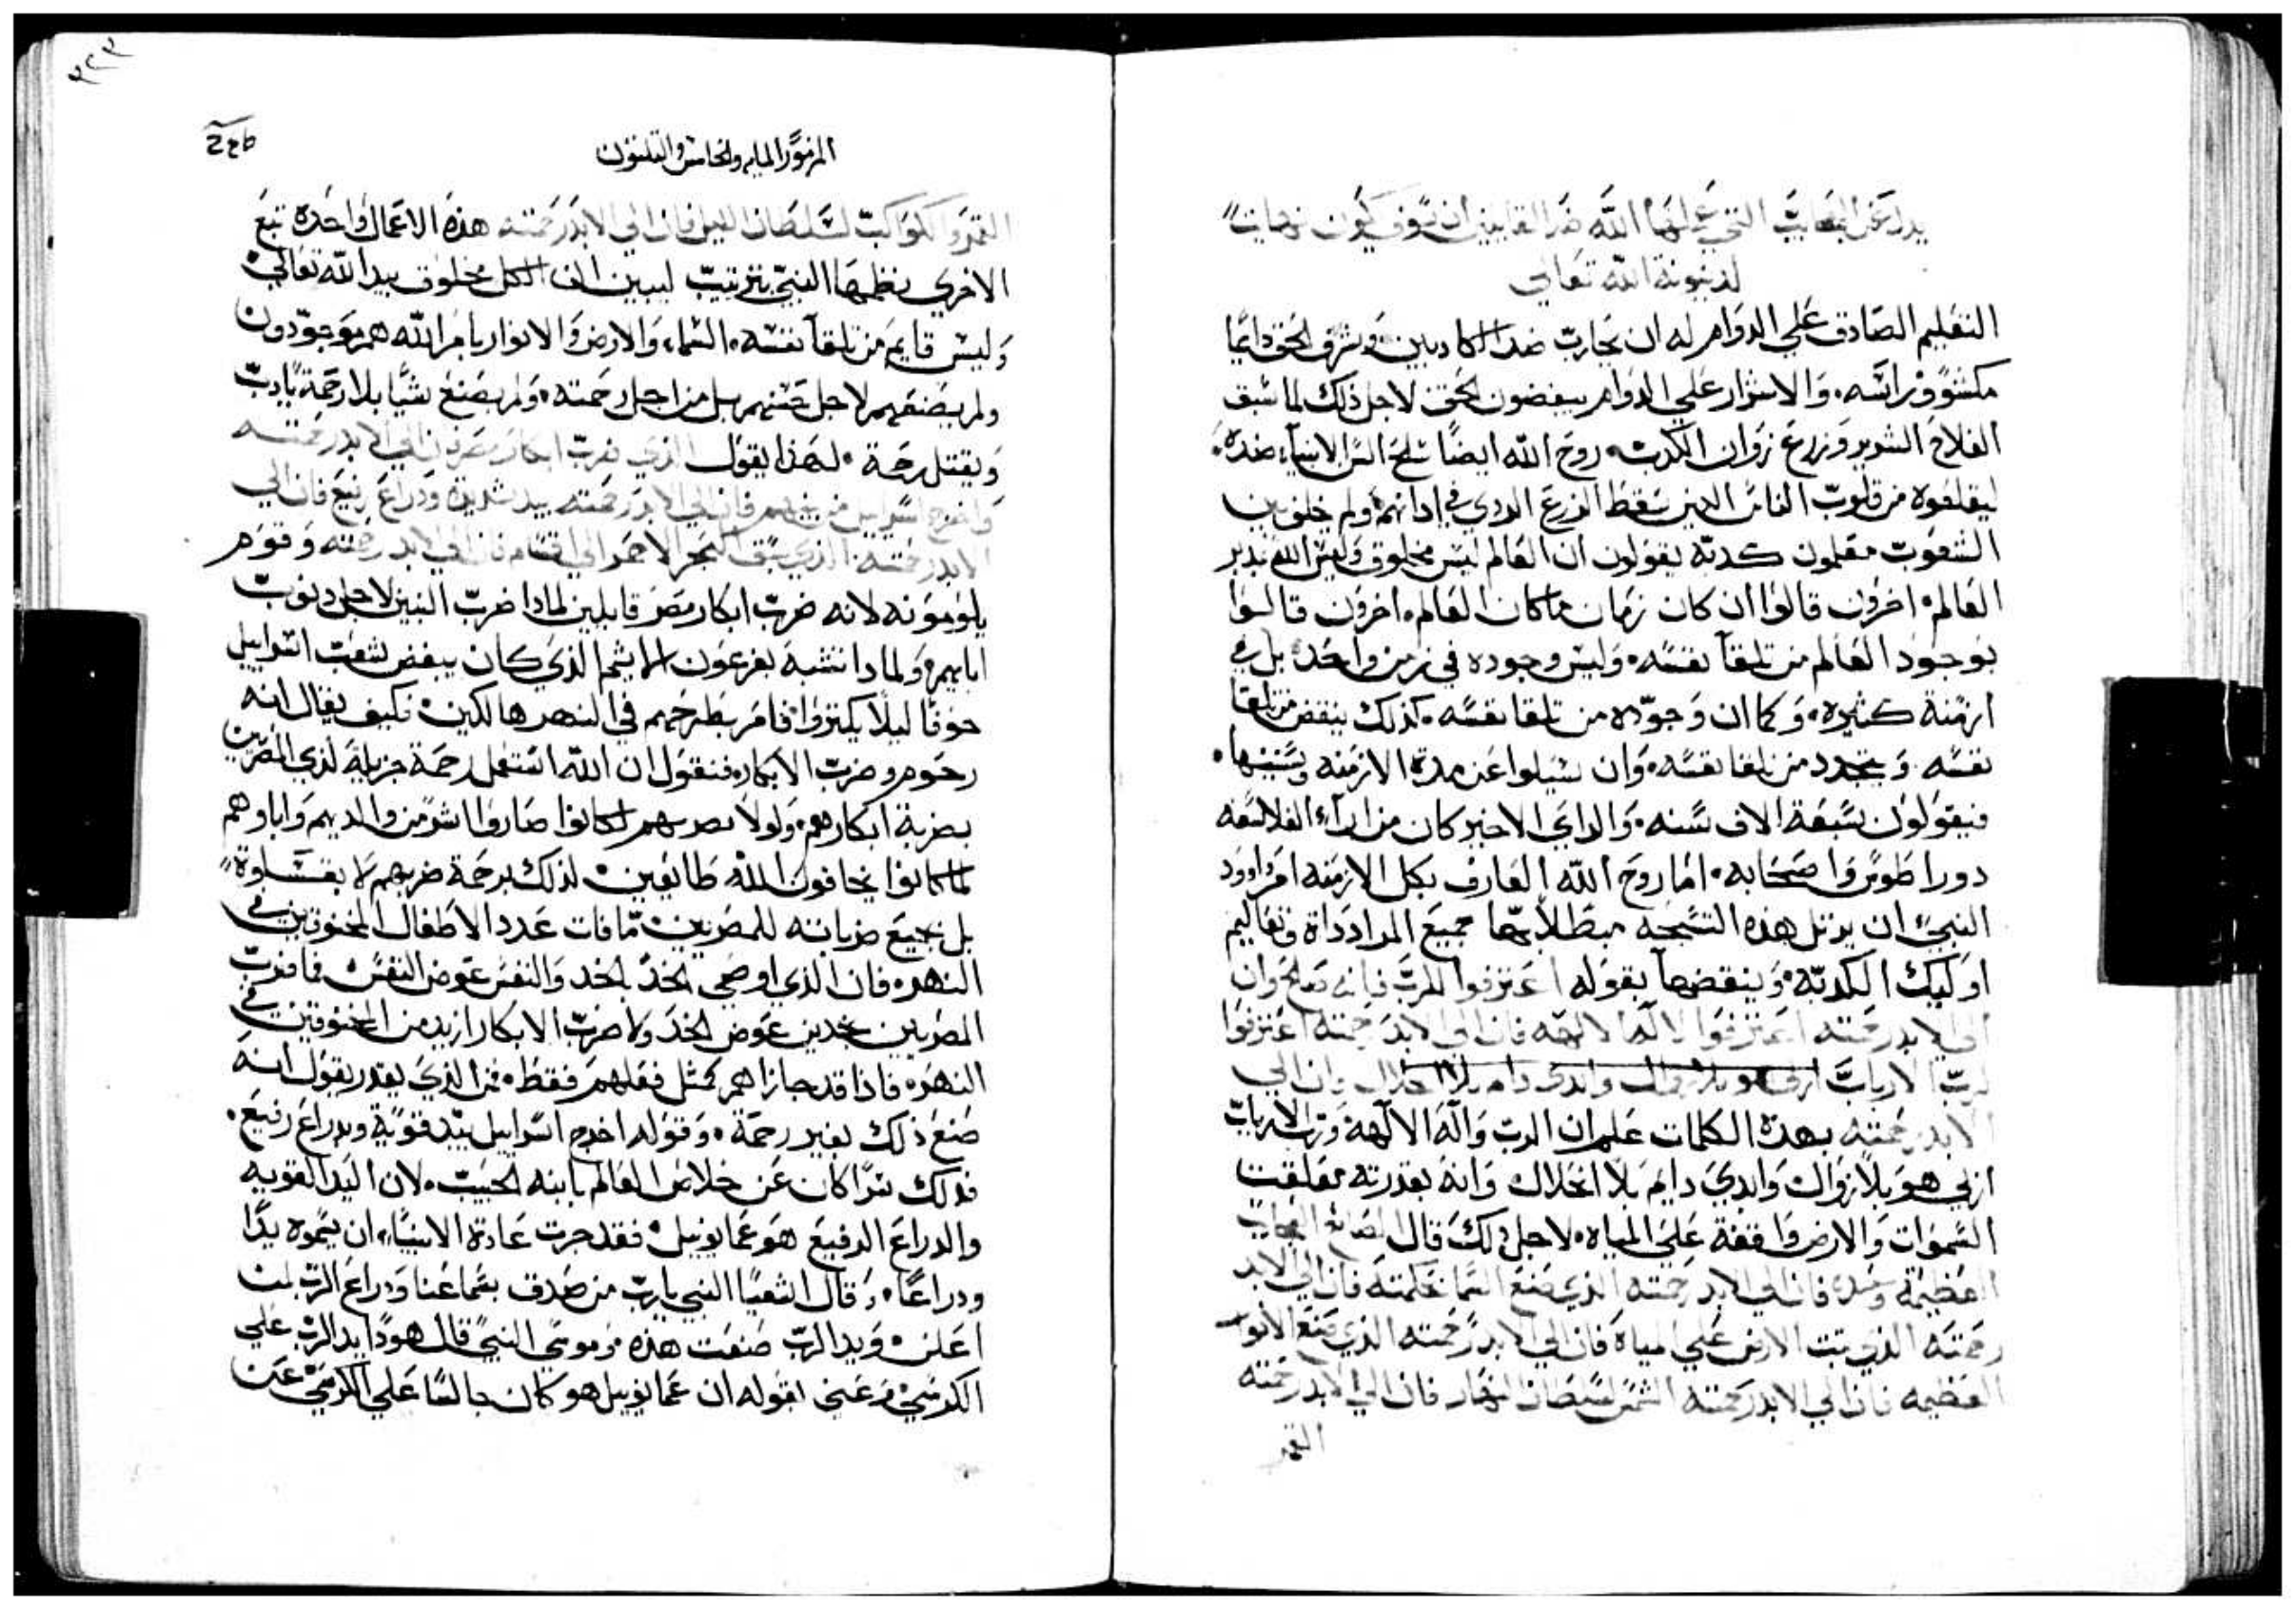 يدل عن العجايب التي عملها الله ضد القايلين ان سوف يكون نهايت
لدينونة الله تعالي
التعليم الصادق علي الدوام له ان يحارب ضد الكادبين وشرق الحق دايما
مكشوف براسه. والاشرار علي الدوام يبغضون الحق لاجل ذلك لما سبق
الفلاح الشرير وزرع زوان الكدب. روح الله ايضا سلح السن الانبياء ضده.
ليقلعوه من قلوب الناس الدين سقط الزرع الردي في ادانهم ولم خلو من
الشعوب معلمون كدبة يقولون ان العالم ليس مخلوق وليس الله يدبر
العالم. اخرون قالوا ان كان زمان ما كان العالم. اخرون قالوا
بوجود العالم من تلقآ نفسه. وليس وجوده في زمن واحد بل في
ازمنة كثيره. وكما ان وجوده من تلقا نفسه. كذلك ينقض من تلقا
نفسه. ويتجدد من تلقا نفسه. وان سيلوا عن مدة الازمنه وسنينها.
فيقولون سبعة الاف سنه. والراي الاخير كان من اراء الفلاسفه
دوراطوس واصحابه. اما روح الله العارف بكل الازمنه امر داوود
النبي ان يرتل هذه التسبحه مبطلا بها جميع المرادداة وتعاليم
اوليك الكدبة. وينقضها بقوله اعترفوا للرب فانه صالح وان
الي الابد رحمته اعترفوا لاله الالهه فان الي الابد رحمته اعترفوا
لرب الارباب فان الي
الابد رحمته بهدة الكلمات علم ان الرب واله الالهة ورب الارباب
ازلي هو بلا زوال وابدي دايم بلا انحلال وانه بقدرته معلقت
السموات والارض واقفة علي المياه. لاجل ذلك قال الصانع العجايب
العظيمة وحده فان الي الابد رحمته الذي صنع السما بحكمته فان الي الابد
رحمته الذي ثبت الارض علي المياه فان الي الابد رحمته الذي صنع الانوار
العظيمه فان الي الابد رحمته الشمس لسلطان النهار فان الي الابد رحمته
القمر
المزمور المايه والخامس والتلتون
القمر والكواكب لسلطان الليل فان الي الابد رحمته هذه الاعمال واحده تبع
الاخري نظمها النبي بترتيب ليبين ان الكل مخلوق بيد الله تعالي
وليس قايم من تلقآ نفسه. السماء والارض والانوار بامر الله هم موجودون
ولم يصنعهم لاجل حسنهم بل من اجل رحمته. ولم يصنع شيا بلا رحمة يادب
ويقتل رحمة. لهذا يقول الذي ضرب ابكار مصر فان الي الابد رحمته
واخرج اسراييل من بينهم فان الي الابد رحمته بيد شديدة ودراع رفيع فان الي
الابد رحمته الذي شق البحر الاحمر الي اقسام فان الي الابد رحمته وقوم
يلوموَنه لانه ضرب ابكار مصر قايلين لمادا ضرب البنين لاجل دنوب
ابايهم. ولمادا تشبه بفرعون الاثيم الذي كان يبغض لشعب اسراييل
خوفا ليلا يكتروا. فامر بطرحهم في النهر هالكين. فكيف يقال انه
رحوم وضرب الابكار. فنقول ان الله استعمل رحمة جزيلة لدي المصريين
بضربة ابكارهم. ولولا لكانوا صاروا اشر من والديهم واباوهم
لما كانوا يخافون الله طايعين. لذلك برحمة ضربهم لا بقساوة
بل جميع ضرباته للمصريين ما فات عدد الاطفال المخنوقين في
النهر. فان الذي اوصي الخد بالخد والنفس عوض النفس. فما ضرب
المصريين بخدين عوض الخد ولا ضرب الابكار ازيد من المخنوقين في
النهر. فاذا قد جازاهم كمثل فعلهم فقط. فمن الذي يقدر يقول انه
صنع ذلك بغير رحمة. وقوله اخرج اسراييل بيد قوية وبدراع رفيع.
فدلك سرا كان عن خلاص العالم بابنه الحبيب. لان اليد القويه
والدراع الرفيع هو عمانوييل. فقد جرت عادة الانبياء ان يسموه يدا
ودراعا. وقال اشعيا النبي يارب من صدق بسماعنا ودراع الرب لمن
اعلن. ويد الرب صنعت هده وموسي النبي قال هودا يد الرب علي
الكرسي. وعني بقوله ان عمانوييل هو كان جالسا علي الكرسي عن